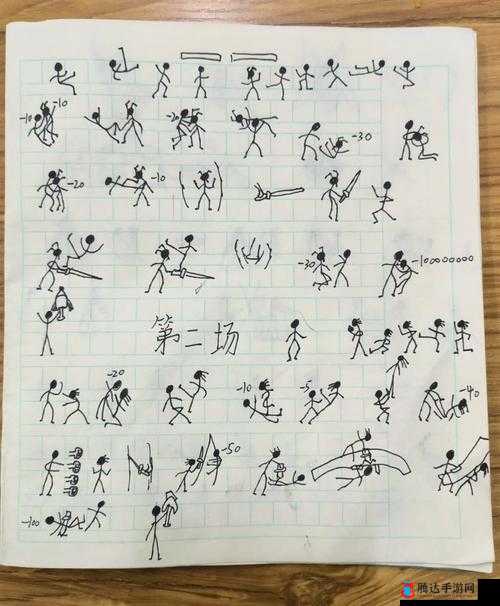 -10 -10 -20 -30
-20 -10
-30 -100000000
第二场
-20 -10 -5 -40
-50
-100
腾达手游网